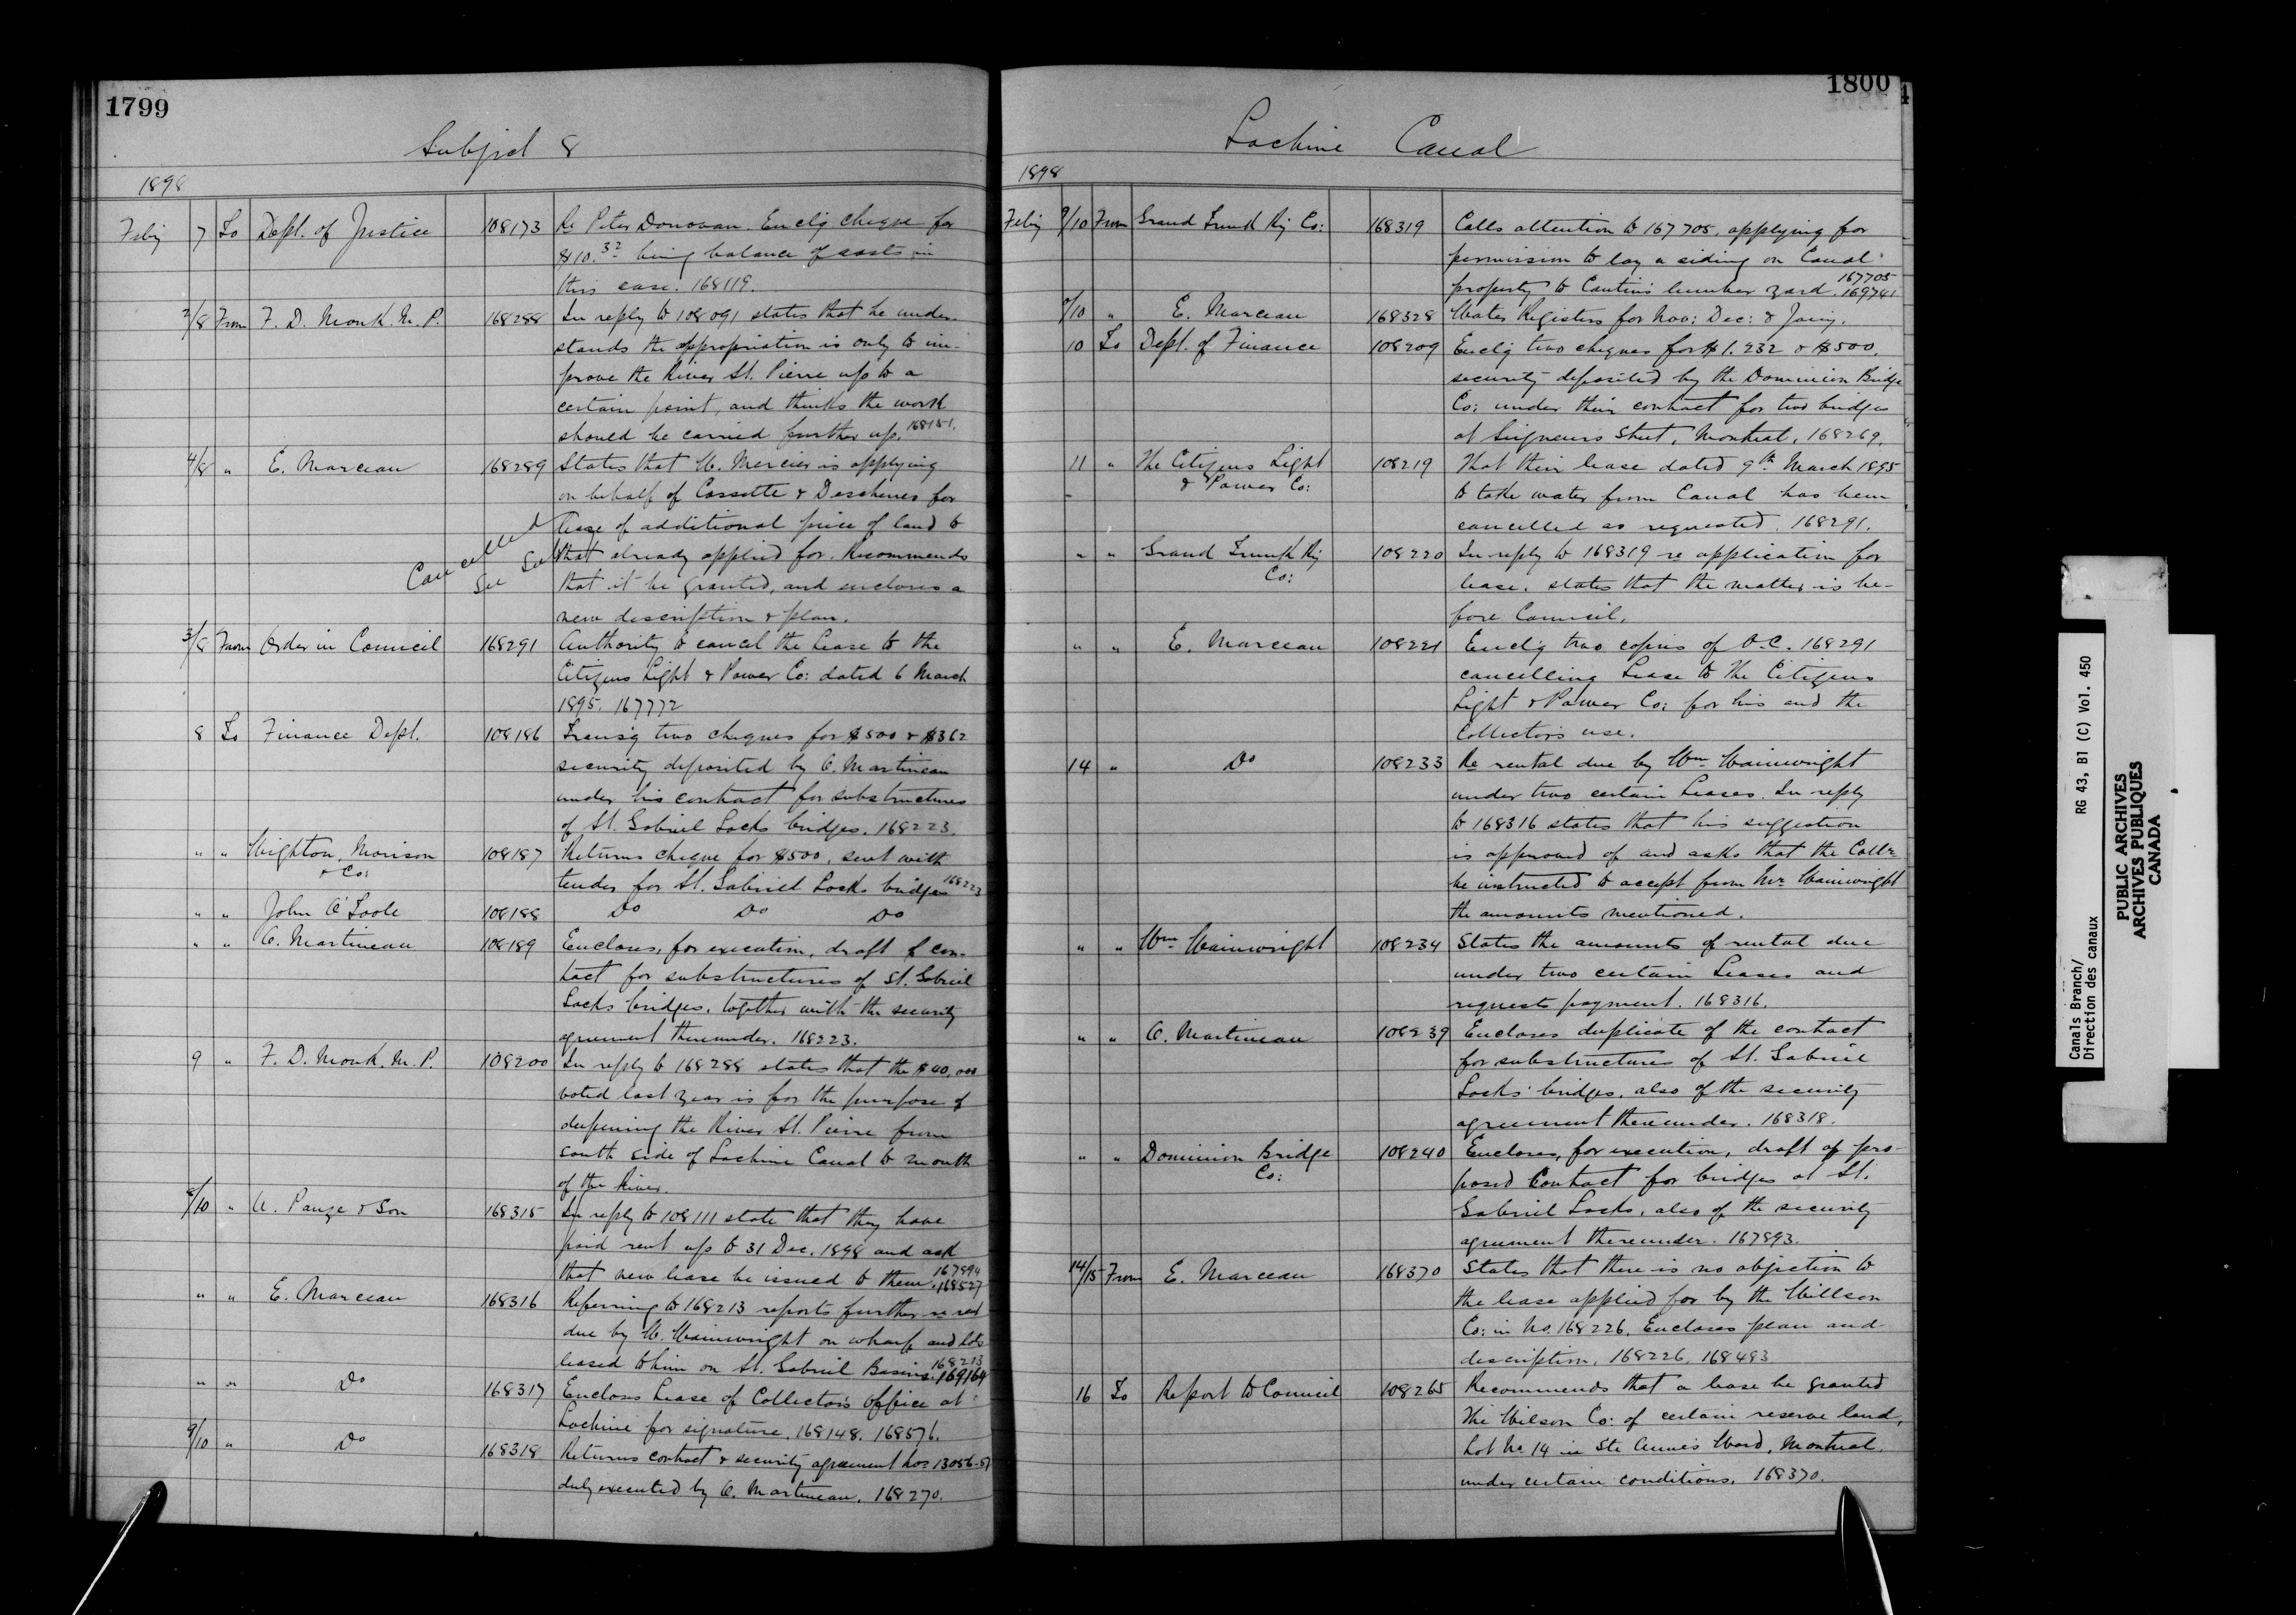 1799
Subject 8
1898
Feby 7 To Dept. of Justice 108173 Re Peter Donovan. Enclg cheque for
$10.32 being balance of costs in
this case. 168119.
2/8 From F. D. Monk. M. P. 168288 In reply to 108091 states that he under-
stands the appropriation is only to im-
prove the River St. Pierre up to a
certain point, and thinks the work
should be carried further up. 168151.
4/8 " E. Marceau 168289 States that W. Mercier is applying
on behalf of Cossette & Deschenes for
lease of additional piece of land to
that already applied for. Recommends
Cancelled
See Sub
that it be granted, and encloses a
new description & plan.
3/8 From Order in Council 168291 Authority to cancel the Lease to the
Citizens Light & Power Co: dated 6 March
1895. 167772
8 To Finance Dept. 108186 Transg two cheques for $500 & $362
security deposited by O. Martineau
under his contract for substructures
of St. Gabriel Locks bridges. 168223.
" " Wighton, Morison
& Co: 108187 Returns cheque for $500, sent with
tender for St. Gabriel Locks bridges 168223
" " John O'Toole 108188 Do Do Do
" " O. Martineau 108189 Encloses, for execution, draft of con-
tract for substructures of St. Gabriel
Locks bridges, together with the security
agreement thereunder. 168223.
9 " F. D. Monk. M. P. 108200 In reply to 168288 states that the $40,000
voted last year is for the purpose of
deepening the River St. Pierre from
south side of Lachine Canal to mouth
of the River.
8/10 " U. Pauze & Son 168315 In reply to 108111 state that they have
paid rent up to 31 Dec. 1898 and ask
that new lease be issued to them. 167894 168527
" " E. Marceau 168316 Referring to 168213 reports further re rent
due by W. Wainwright on wharf and lots
leased to him on St. Gabriel Basins. 168213 169164
" " Do 168317 Encloses Lease of Collector's office at
Lachine for signature. 168148. 168576.
9/10 " Do 168318 Returns contract & security agreement Nos 13056-57
duly executed by O. Martineau. 168270.
1800
Lachine Canal
1898
Feby 9/10 From Grand Trunk Ry Co: 168319 Calls attention to 167705, applying for
permission to lay a siding on Canal
property to Cantin's lumber yard. 167705 169741
8/10 " E. Marceau 168328 Water Registers for Nov: Dec: & Jany.
10 To Dept. of Finance 108209 Enclg two cheques for $1,232 & $500,
security deposited by the Dominion Bridge
Co: under their contract for two bridges
at Seigneurs Street, Montreal. 168269.
11 " The Citizens Light
& Power Co: 108219 That their lease dated 9th March 1895
to take water from Canal has been
cancelled as requested. 168291.
" " Grand Trunk Ry
Co: 108220 In reply to 168319 re application for
lease, states that the matter is be-
fore Council.
" " E. Marceau 108221 Enclg two copies of O.C. 168291
cancelling Lease to the Citizens
Light & Power Co: for his and the
Collector's use.
14 " Do 108233 Re rental due by Wm Wainwright
under two certain Leases. In reply
to 168316 states that his suggestion
is approved of and asks that the Collr
be instructed to accept from Mr Wainwright
the amounts mentioned.
" " Wm Wainwright 108234 States the amounts of rental due
under two certain Leases and
requests payment. 168316.
" " O. Martineau 108239 Encloses duplicate of the contract
for substructures of St. Gabriel
Locks bridges, also of the security
agreement thereunder. 168318.
" " Dominion Bridge
Co: 108240 Encloses, for execution, draft of pro-
posed Contract for bridges at St.
Gabriel Locks, also of the security
agreement thereunder. 167893.
14/15 From E. Marceau 168370 States that there is no objection to
the lease applied for by the Willson
Co: in No. 168226. Encloses plan and
description. 168226. 168483
16 To Report to Council 108265 Recommends that a lease be granted
The Wilson Co: of certain reserve land,
Lot No 14 in Ste Anne's Ward, Montreal
under certain conditions. 168370.
Canals Branch/
Direction des canaux
RG 43, B1 (C) Vol. 450
PUBLIC ARCHIVES
ARCHIVES PUBLIQUES
CANADA